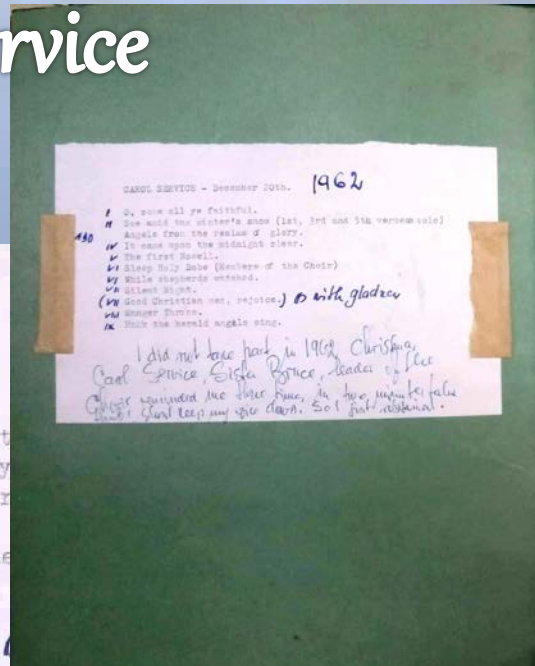 rvice
CAROL SERVICE - December 20th. 1962
I O, come all ye faithful.
II See amid the winter's snow (1st, 3rd and 5th verses solo)
Angels from the realms of glory.
IV It came upon the midnight clear.
V The first Nowell.
VI Sleep Holy Babe (Members of the Choir)
VI While shepherds watched.
VII Silent Night.
(VII Good Christian men, rejoice.) with gladness
VIII Manger Throne.
IX Hark the herald angels sing.
I did not take part in 1962 Christmas
Carol Service, Sister Bruce, leader of the
Choir reminded me three times, in two minutes
I must keep my voice down. So I just